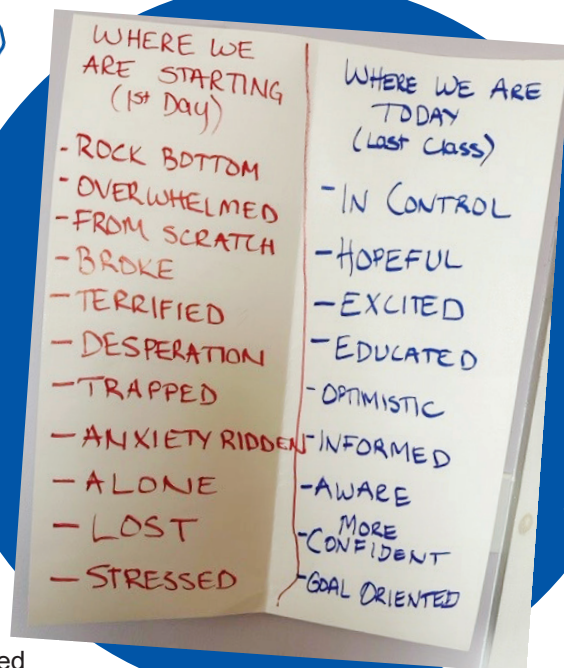 WHERE WE
ARE STARTING
(1st Day)
- ROCK BOTTOM
- OVERWHELMED
- FROM SCRATCH
- BROKE
- TERRIFIED
- DESPERATION
- TRAPPED
- ANXIETY RIDDEN
- ALONE
- LOST
- STRESSED
WHERE WE ARE
TODAY
(Last Class)
- IN CONTROL
- HOPEFUL
- EXCITED
- EDUCATED
- OPTIMISTIC
- INFORMED
- AWARE
- MORE
CONFIDENT
- GOAL ORIENTED
ed